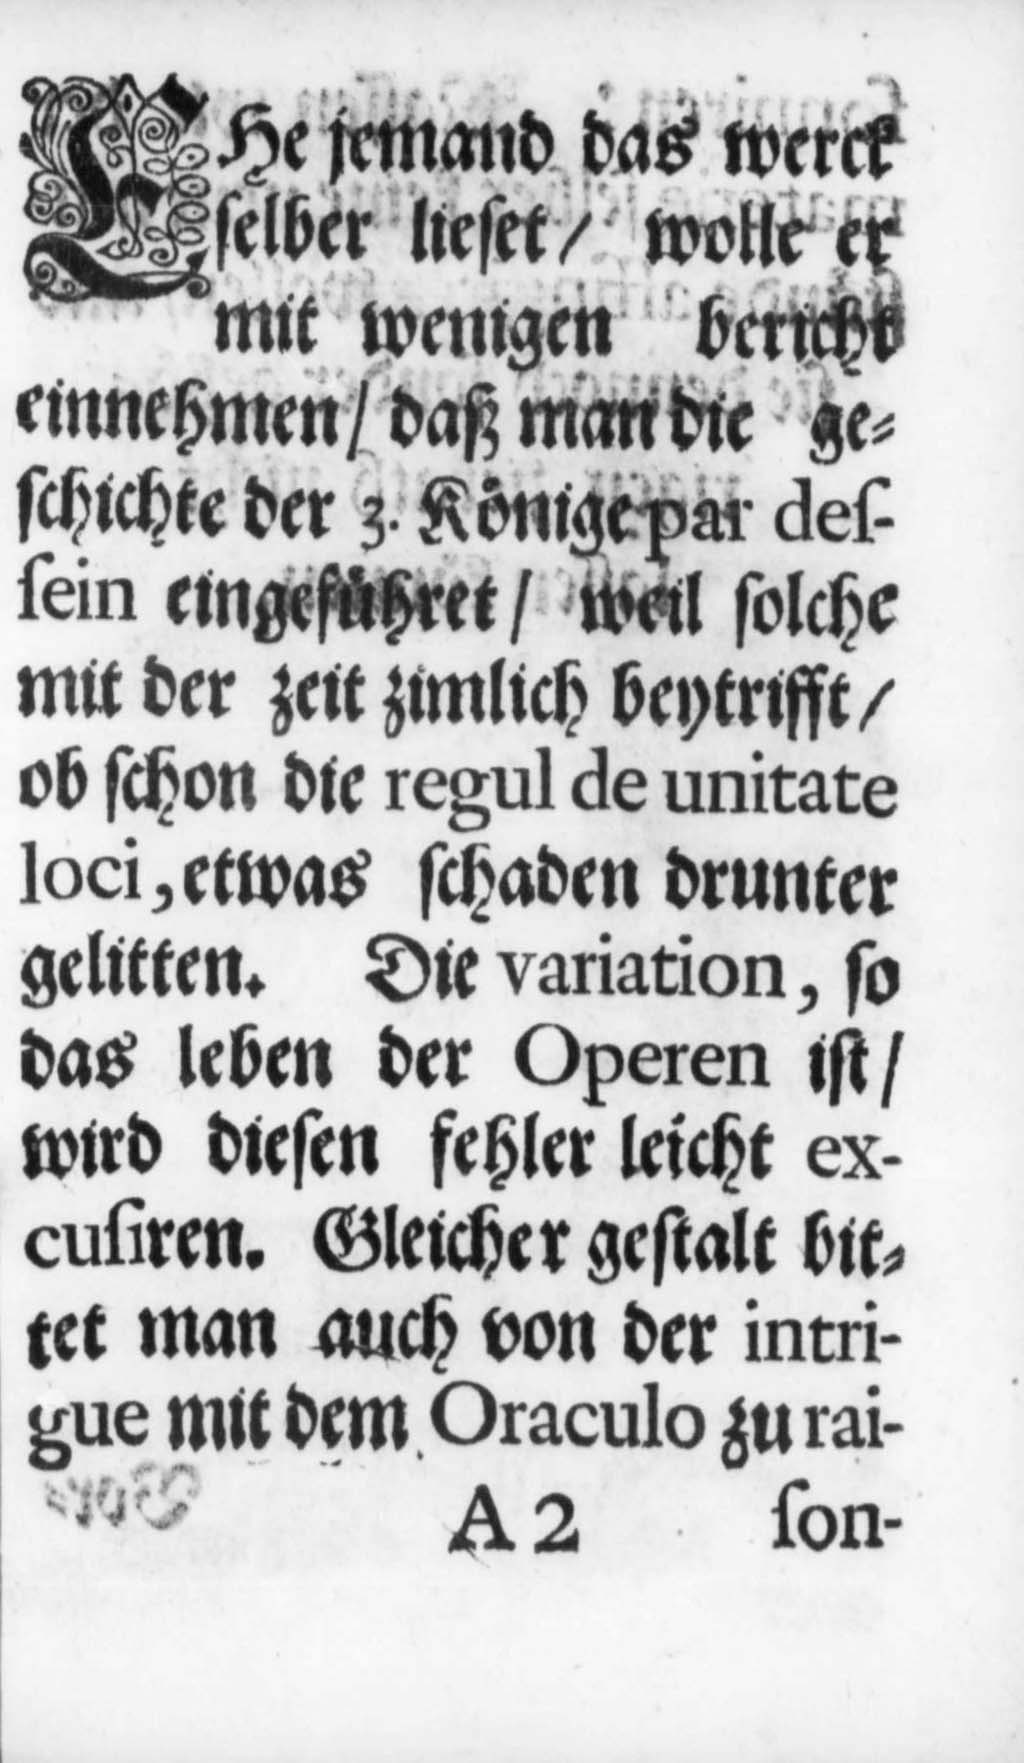 EHe jemand das werck
ſelber lieſet / wolle er
mit wenigen bericht
einnehmen / daß man die ge⸗
ſchichte der 3. Könige par deſ-
ſein eingeführet / weil ſolche
mit der zeit zimlich beytrifft /
ob ſchon die regul de unitate
loci, etwas ſchaden drunter
gelitten. Die variation, ſo
das leben der Operen iſt /
wird dieſen fehler leicht ex-
cuſiren. Gleicher geſtalt bit⸗
tet man auch von der intri-
gue mit dem Oraculo zu rai-
A 2 ſon-